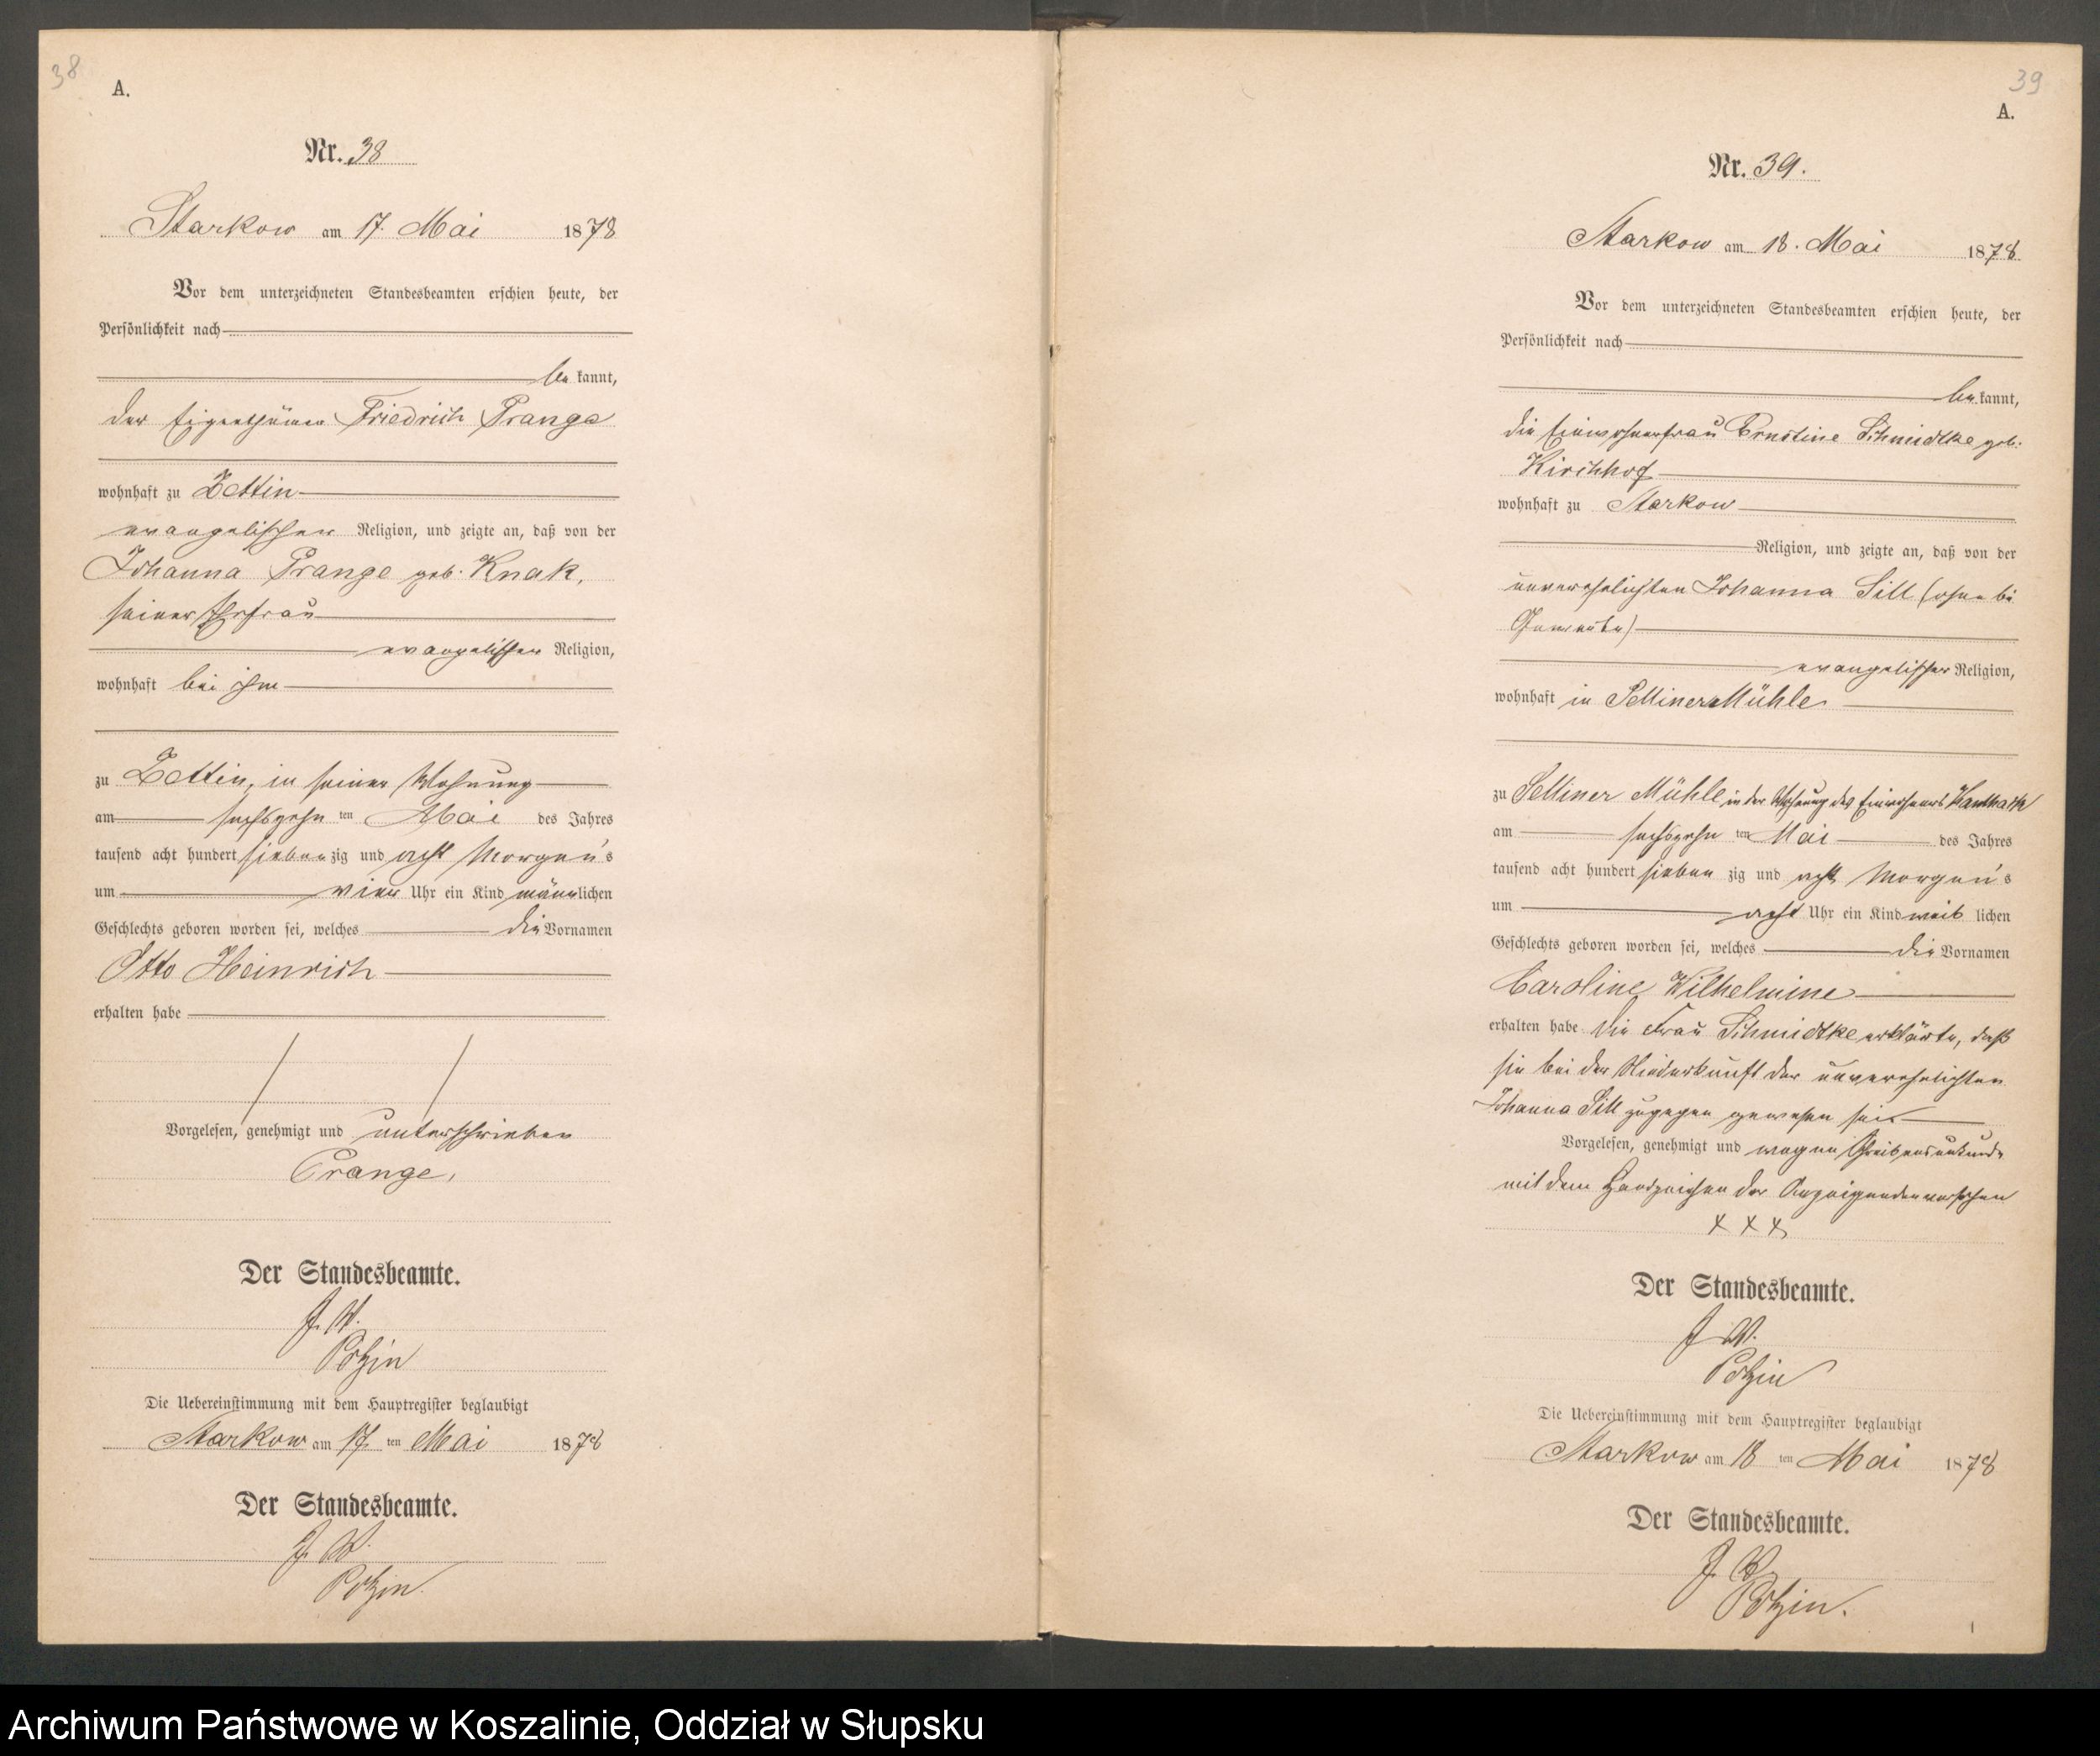 38
A.
Nr. 38
Starkow am 17. Mai 1878
Vor dem unterzeichneten Standesbeamten erschien heute, der
Persönlichkeit nach
be kannt,
der Eigenthümer Friedrich Prange
wohnhaft zu Zettin
evangelischer Religion, und zeigte an, daß von der
Johanna Prange geb. Knak,
seiner Ehefrau
evangelischer Religion,
wohnhaft bei ihm
zu Zettin, in seiner Wohnung
am sechszehn ten Mai des Jahres
tausend acht hundert sieben zig und acht Morgen's
um vier Uhr ein Kind männ lichen
Geschlechts geboren worden sei, welches die Vornamen
Otto Heinrich
erhalten habe
Vorgelesen, genehmigt und unterschrieben
Prange.
Der Standesbeamte.
J. V.
Potzin
Die Uebereinstimmung mit dem Hauptregister beglaubigt
Starkow am 17 ten Mai 1878
Der Standesbeamte.
J. V.
Potzin.
39
A.
Nr. 39.
Starkow am 18. Mai 1878
Vor dem unterzeichneten Standesbeamten erschien heute, der
Persönlichkeit nach
be kannt,
die Einwohnerfrau Ernstine Schmidtke geb.
Kirchhof
wohnhaft zu Starkow
Religion, und zeigte an, daß von der
unverehelichten Johanna Sill (ohne
Gewerbe)
evangelischer Religion,
wohnhaft in Selliner Mühle
zu Selliner Mühle in der Wohnung des Einwohners
am sechszehn ten Mai des Jahres
tausend acht hundert sieben zig und acht Morgen's
um acht Uhr ein Kind weib lichen
Geschlechts geboren worden sei, welches die Vornamen
Caroline Wilhelmine
erhalten habe Die Frau Schmidtke erklärte, daß
sie bei der Niederkunft der unverehelichten
Johanna Sill zugegen gewesen sei.
Vorgelesen, genehmigt und wegen Schreibensunkunde
mit dem Handzeichen der Anzeigenden versehen
XXX
Der Standesbeamte.
J. V.
Potzin
Die Uebereinstimmung mit dem Hauptregister beglaubigt
Starkow am 18 ten Mai 1878
Der Standesbeamte.
J. V.
Potzin.
Archiwum Państwowe w Koszalinie, Oddział w Słupsku